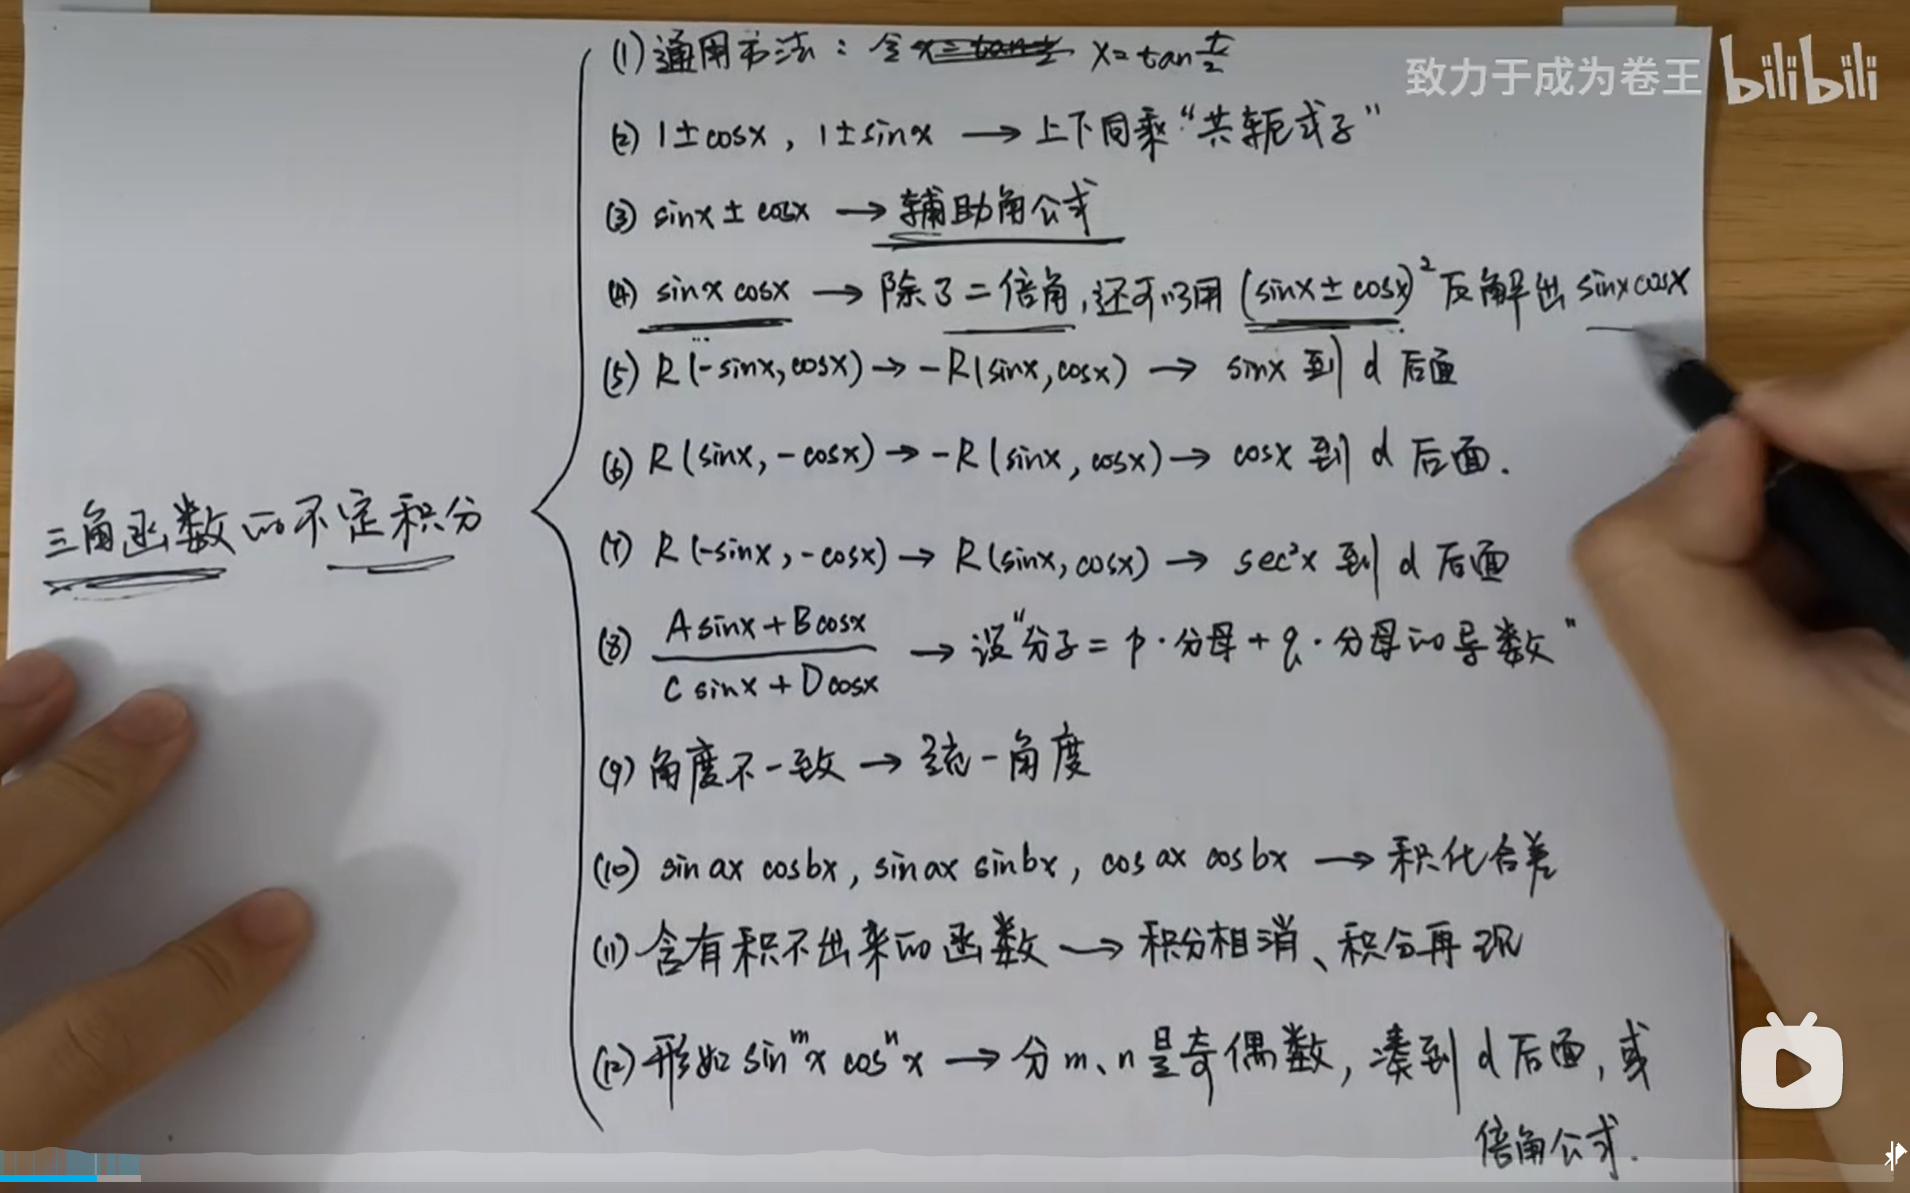 致力于成为卷王 bilibili
三角函数的不定积分
(1) 通用方法：令 x=tan t/2
(2) 1±cosx , 1±sinx → 上下同乘“共轭式子”
(3) sinx ± cosx → 辅助角公式
(4) sinx cosx → 除了二倍角,还可以用 (sinx±cosx)² 反解出 sinxcosx
(5) R(-sinx,cosx) → -R(sinx,cosx) → sinx 到 d 后面
(6) R(sinx,-cosx) → -R(sinx,cosx) → cosx 到 d 后面.
(7) R(-sinx,-cosx) → R(sinx,cosx) → sec²x 到 d 后面
(8) Asinx+Bcosx / Csinx+Dcosx → 设“分子=p·分母+q·分母的导数”
(9) 角度不一致 → 统一角度
(10) sin ax cos bx , sin ax sin bx , cos ax cos bx → 积化合差
(11) 含有积不出来的函数 → 积分相消、积分再现
(12) 形如 sinᵐx cosⁿx → 分 m、n 是奇偶数, 凑到 d 后面, 或
倍角公式.